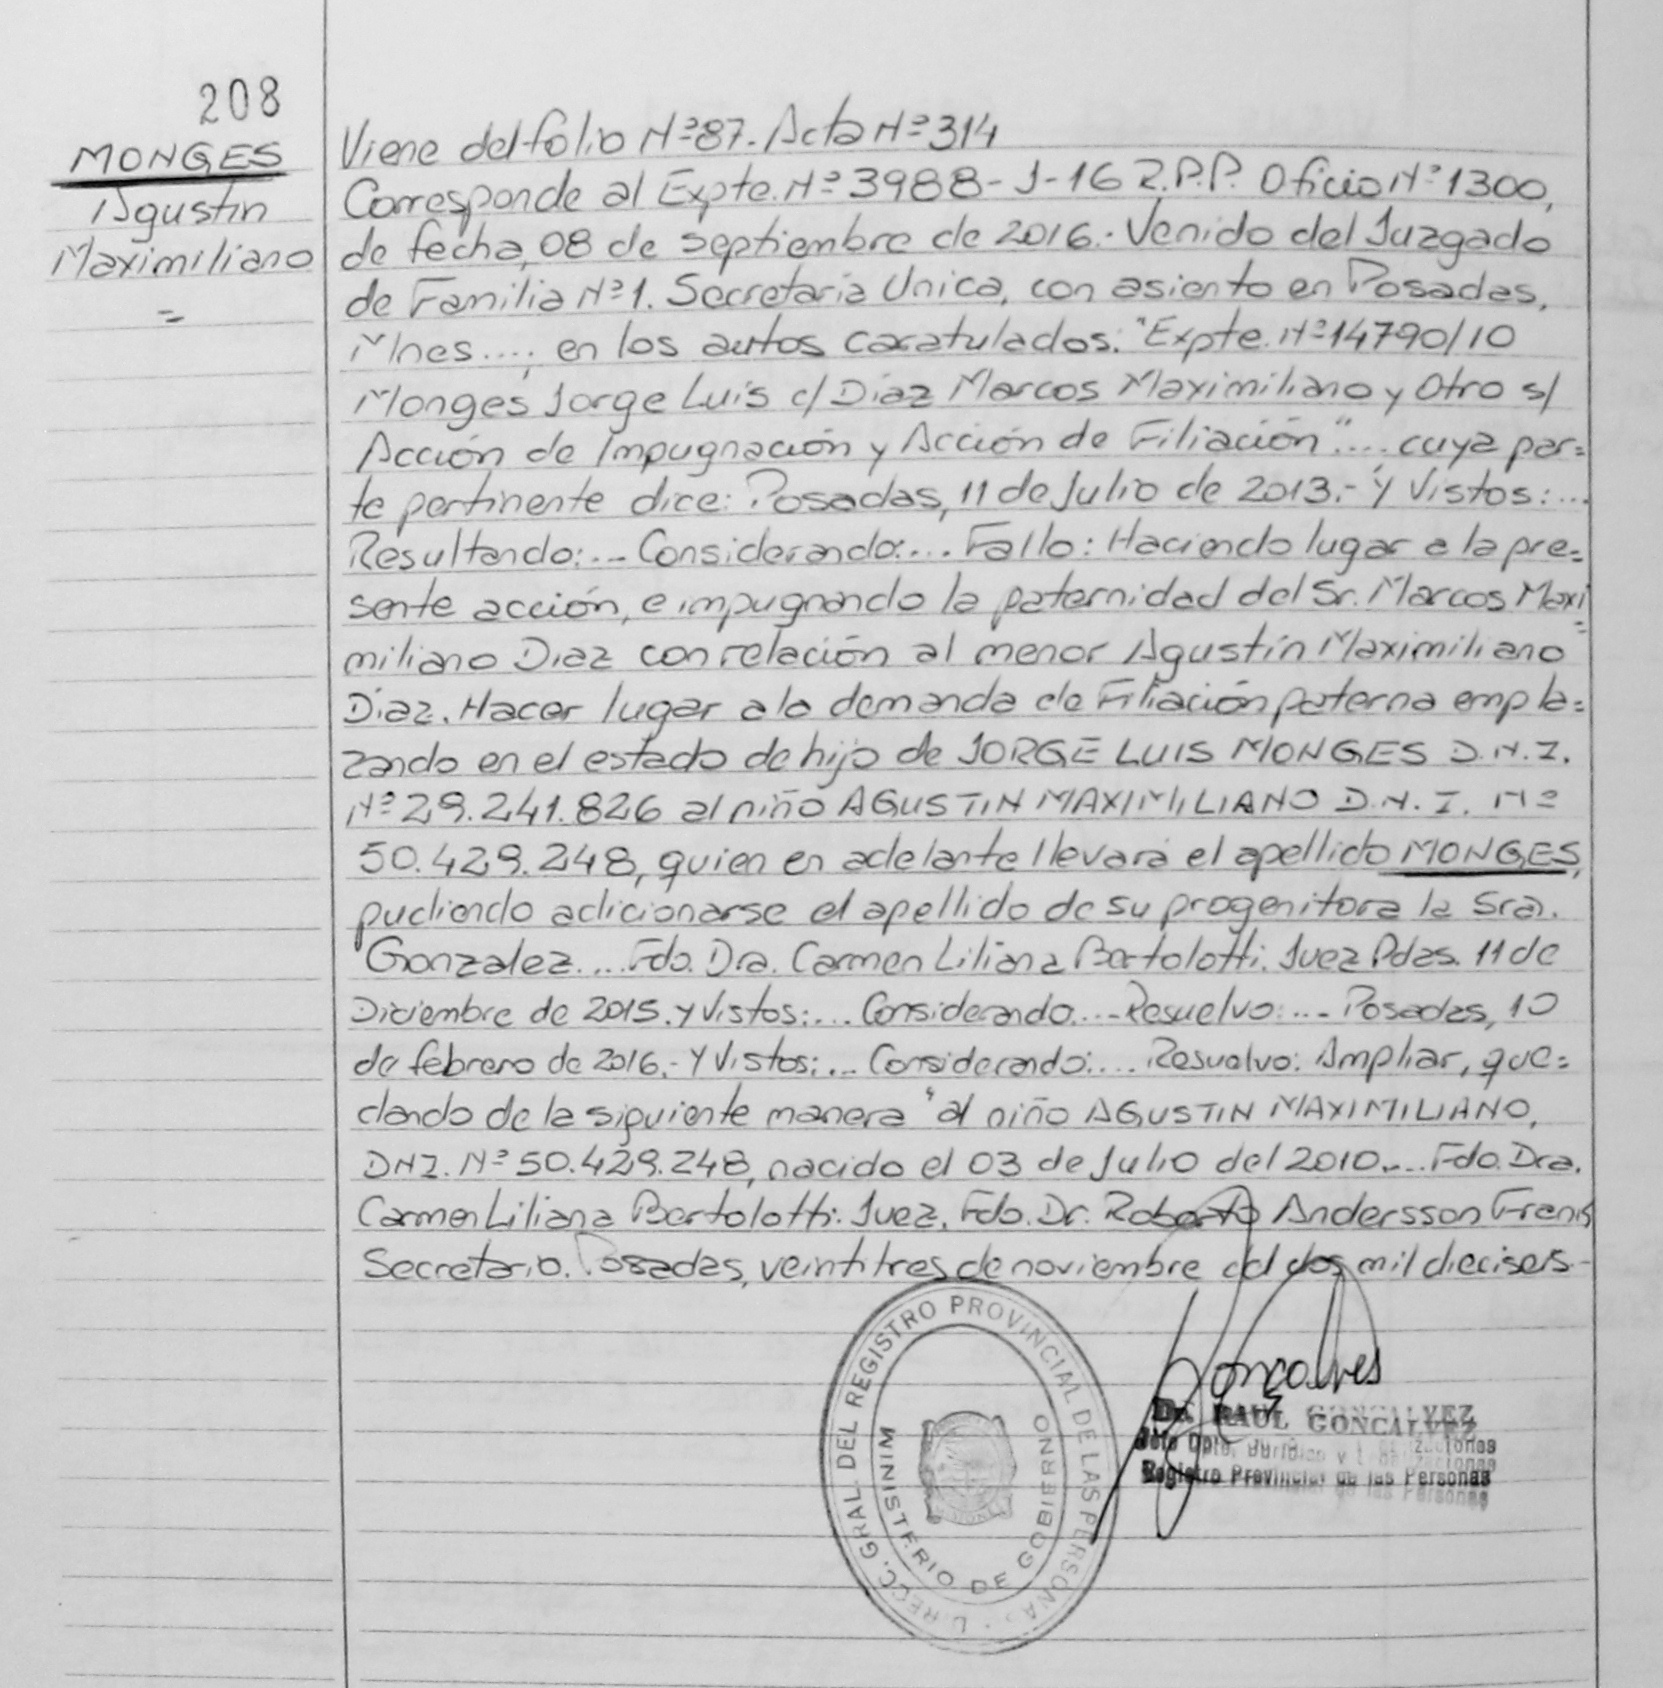 208
MONGES
Agustín
Maximiliano
=
Viene del folio Nº 87. Acta Nº 314
Corresponde al Expte. Nº 3988-J-16 R.P.P. Oficio Nº 1300,
de fecha, 08 de septiembre de 2016.- Venido del Juzgado
de Familia Nº 1. Secretaría Unica, con asiento en Posadas,
Mnes....; en los autos caratulados: "Expte. Nº 14790/10
Monges Jorge Luis c/ Díaz Marcos Maximiliano y Otro s/
Acción de Impugnación y Acción de Filiación"....; cuya par=
te pertinente dice: Posadas, 11 de Julio de 2013.- Y Vistos:...
Resultando:... Considerando:... Fallo: Haciendo lugar a la pre=
sente acción, e impugnando la paternidad del Sr. Marcos Maxi=
miliano Diaz con relación al menor Agustín Maximiliano
Diaz. Hacer lugar a la demanda de Filiación paterna empla=
zando en el estado de hijo de JORGE LUIS MONGES D.N.I.
Nº 29.241.826 al niño AGUSTIN MAXIMILIANO D.N.I. Nº
50.429.248, quien en adelante llevará el apellido MONGES,
pudiendo adicionarse el apellido de su progenitora la Sra.
Gonzalez....Fdo. Dra. Carmen Liliana Bertolotti. Juez Pdas. 11 de
Diciembre de 2015. Y Vistos:... Considerando....Resuelvo:... Posadas, 10
de febrero de 2016.- Y Vistos:... Considerando:.... Resuelvo: Ampliar, que=
dando de la siguiente manera "al niño AGUSTIN MAXIMILIANO,
DNI. Nº 50.429.248, nacido el 03 de Julio del 2010.... Fdo. Dra.
Carmen Liliana Bertolotti. Juez. Fdo. Dr. Roberto Andersson Frank
Secretario. Posadas, veintitres de noviembre del dos mil dieciseis.-
DIRECC. GRAL. DEL REGISTRO PROVINCIAL DE LAS PERSONAS
MINISTERIO DE GOBIERNO
Goncalves
Dr. RAUL GONCALVEZ
Jefe Dpto. y
Registro Provincial de las Personas